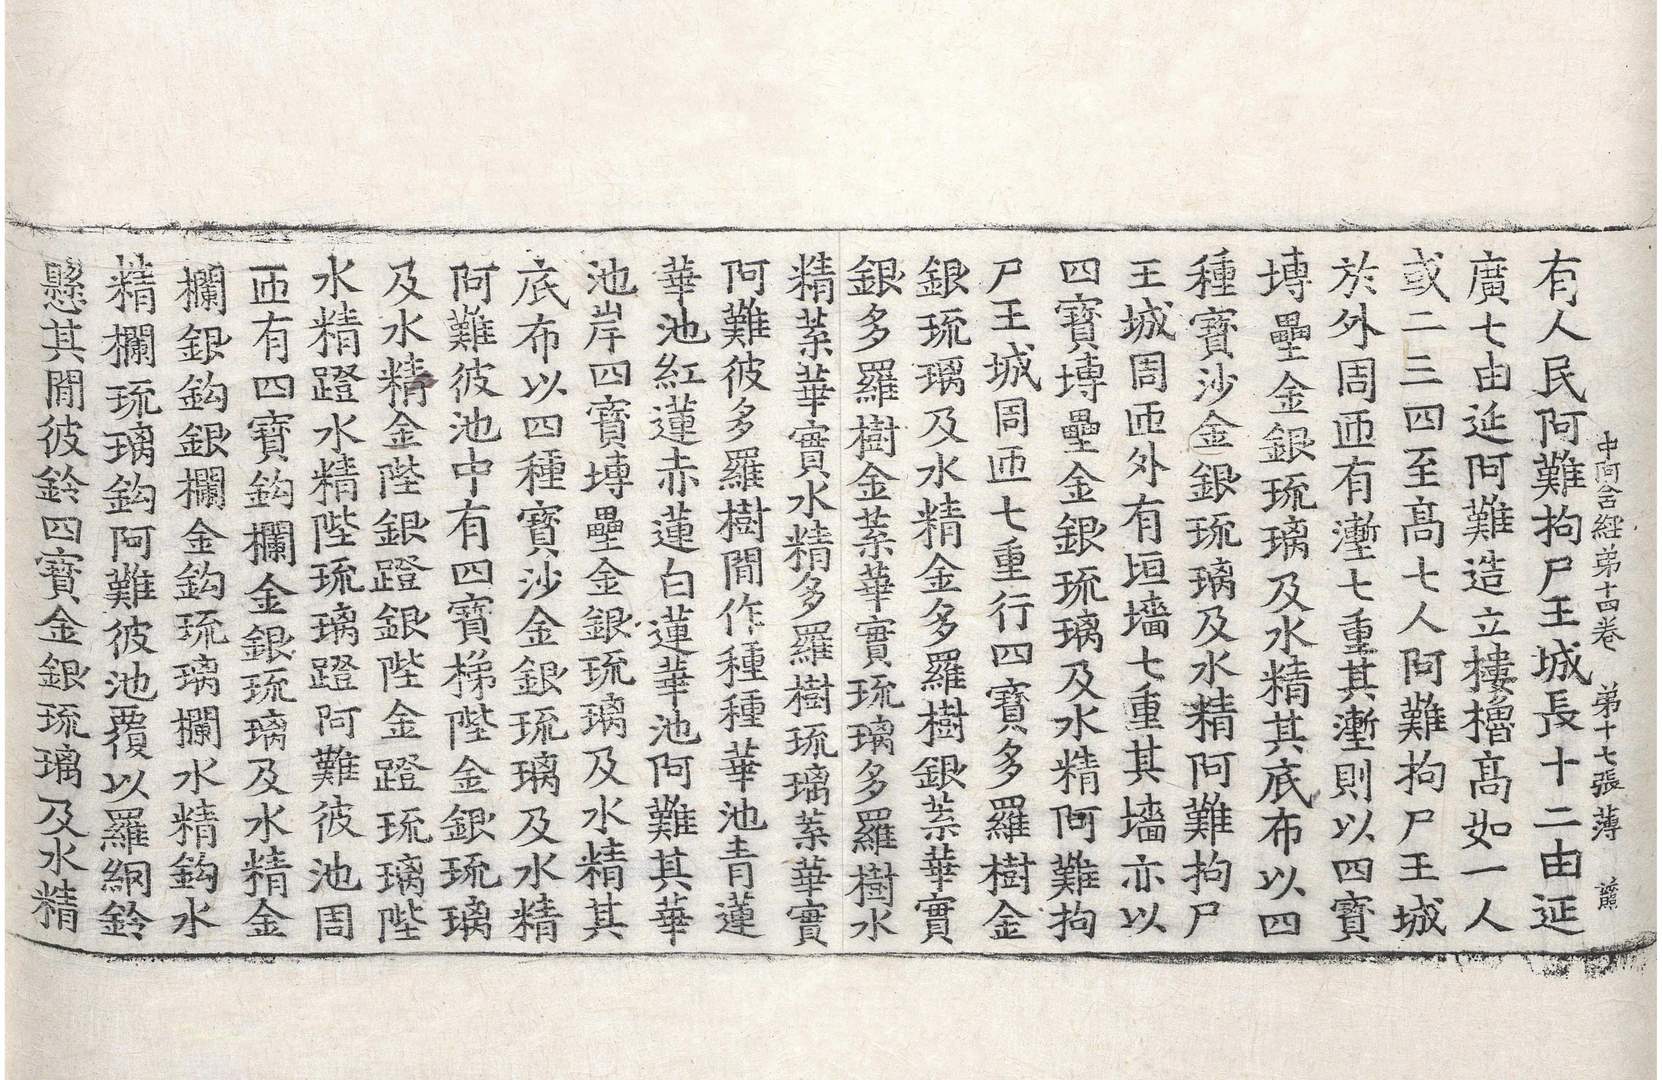 中阿含経苐十四卷 苐十七張 薄
有人民阿難拘尸王城長十二由延
廣七由延阿難造立樓櫓髙如一人
或二三四至髙七人阿難拘尸王城
於外周匝有壍七重其壍則以四寶
塼壘金銀琉璃及水精其底布以四
種寶沙金銀琉璃及水精阿難拘尸
王城周匝外有垣墻七重其墻亦以
四寶塼壘金銀琉璃及水精阿難拘
尸王城周匝七重行四寶多羅樹金
銀琉璃及水精金多羅樹銀葉華實
銀多羅樹金葉華實琉璃多羅樹水
精葉華實水精多羅樹琉璃葉華實
阿難彼多羅樹間作種種華池青蓮
華池紅蓮赤蓮白蓮華池阿難其華
池岸四寶塼壘金銀琉璃及水精其
底布以四種寶沙金銀琉璃及水精
阿難彼池中有四寶梯陛金銀琉璃
及水精金陛銀蹬銀陛金蹬琉璃陛
水精蹬水精陛琉璃蹬阿難彼池周
匝有四寶鈎欄金銀琉璃及水精金
欄銀鈎銀欄金鈎琉璃欄水精鈎水
精欄琉璃鈎阿難彼池覆以羅網鈴
懸其間彼鈴四寶金銀琉璃及水精